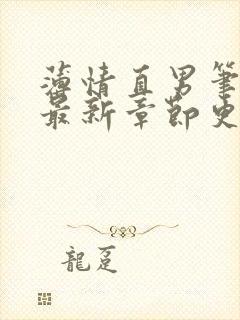 薄情直男筆
最新章節史
龍趸